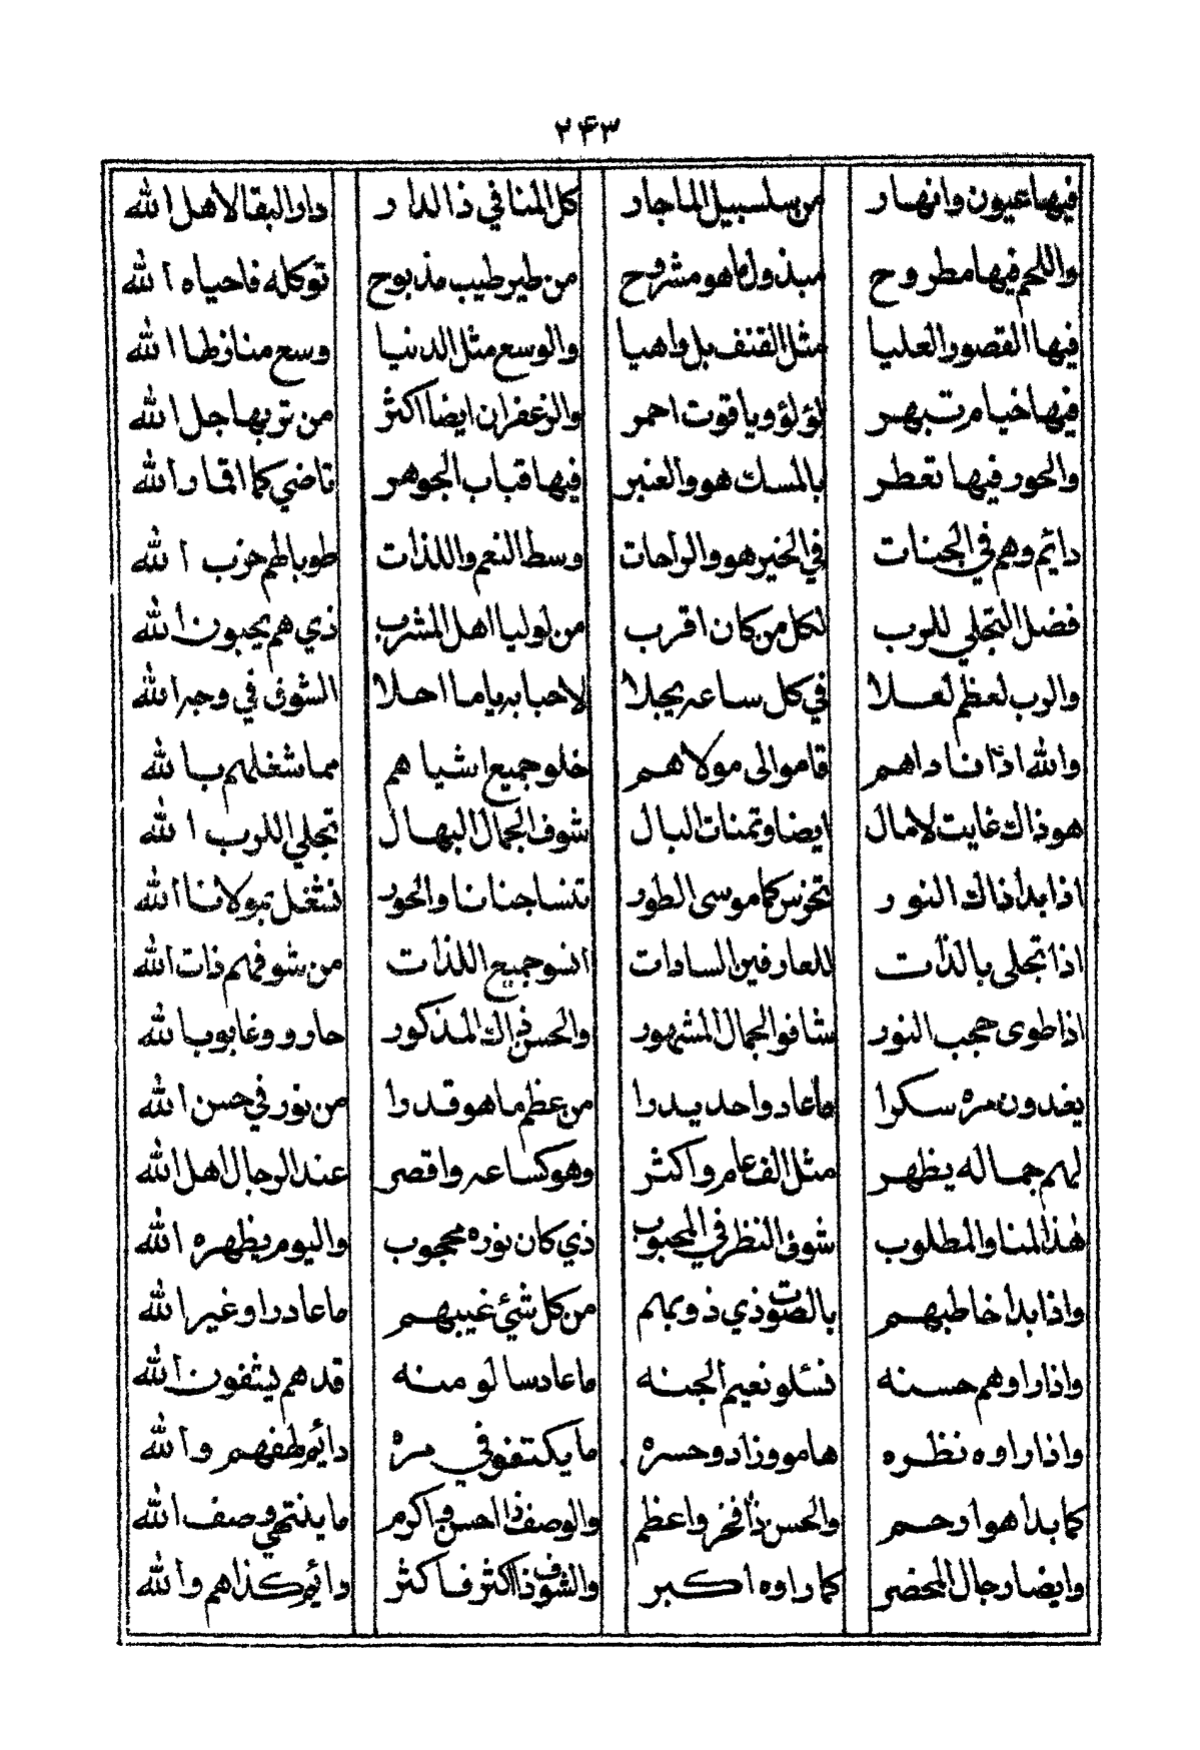 ٢٤٣
فيها عيون وانهار من سلسبيل الماجار كل المنا في ذا الدار دار البقا لاهل الله
واللحم فيها مطروح مبذول ما هو مشروح من طير طيب مذبوح توكله فاحياه الله
فيها القصور العليا مثل القنف بل واهيا والوسع مثل الدنيا وسع منازلها الله
فيها خيام تبهر لؤلؤ وياقوت احمر والزعفران ايضا اكثر من تربها جل الله
والحور فيها تعطر بالمسك هو والعنبر فيها قباب الجوهر تاضي كما اقمار الله
دايم وهم في الجنات في الخير هو والراحات وسط النعم واللذات طوبا لهم حزب الله
فضل التجلي للرب لكل من كان اقرب من لوليا اهل المشرب ذي هم يحبون الله
والرب لعظم لعلا في كل ساعه يجلا لاحبابه ياما احلا الشوف في وجه الله
والله اذا ناداهم قاموا لى مولاهم خلو جميع اشياهم مما شغلهم بالله
هو ذاك غايت لامال ايضا وتمنات البال شوف الجمال البهال تجلي الرب الله
اذا بدا ذاك النور تخرس كما موسى الطور تنسا جنانا والحور نشغل بمولانا الله
اذا تجلى بالذات للعارفين السادات انسو جميع اللذات من شوفهم ذات الله
اذا طوى حجب النور شافو الجمال المشهور والحسن ذاك المذكور حارو وغابو بالله
يغدون مره سكرا ما عاد واحد يدرا من عظم ما هو قدرا من نور في حسن الله
لهم جماله يظهر مثل الف عام واكثر وهو كساعه واقصر عند الرجال اهل الله
هذا المنا والمطلوب شوف النظر في المحبوب ذي كان نوره محجوب واليوم يظهره الله
واذا بدا خاطبهم بالصوت ذي ذوبهم من كل شئ غيبهم ما عاد راو غير الله
واذا راوهم حسنه نسلو نعيم الجنه ما عاد سالو منه قد هم يشفون الله
واذا راوه نظره هامو وزاد وحسره ما يكتفو في مره دايم لهفهم والله
كما بدا هو ارحم والحسن ذا فخر واعظم والوصف ذا احسن واكرم ما ينتهي وصف الله
وايضا رجال المحضر كما راوه اكبر والشوف ذا اكثر فاكثر دايم كذا هم والله